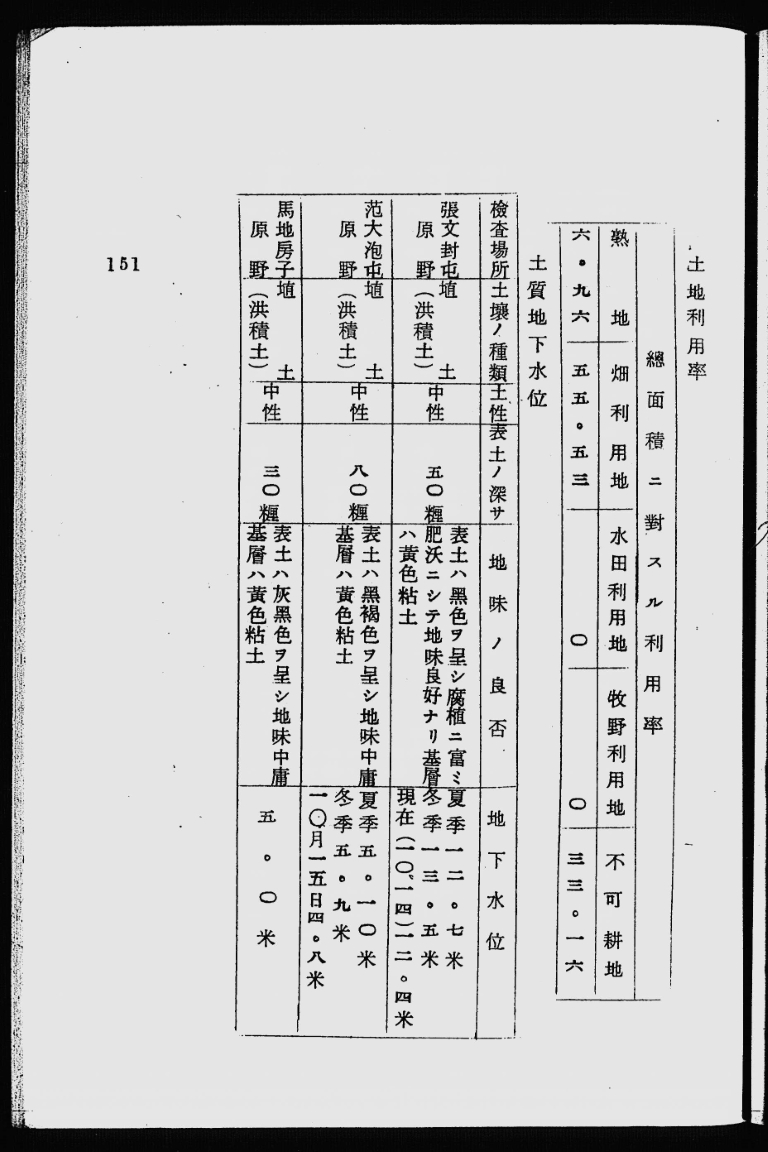 土地利用率
總面積ニ對スル利用率
熟地 畑利用地 水田利用地 牧野利用地 不可耕地
六。九六 五五。五三 〇 〇 三三。一六
土質地下水位
檢査場所 土壤ノ種類 土性 表土ノ深サ 地味ノ良否 地下水位
張文封屯 埴土 表土ハ黑色ヲ呈シ腐植ニ富ミ 夏季一二。七米
原野 (洪積土) 中性 五〇糎 肥沃ニシテ地味良好ナリ基層 冬季一三。五米
ハ黃色粘土 現在(一〇、一四)一二。四米
范大泡屯 埴土 表土ハ黑褐色ヲ呈シ地味中庸 夏季五。一〇米
原野 (洪積土) 中性 八〇糎 基層ハ黃色粘土 冬季五。九米
一〇月一五日四。八米
馬地房子 埴土 表土ハ灰黑色ヲ呈シ地味中庸
原野 (洪積土) 中性 三〇糎 基層ハ黃色粘土 五。〇米
151